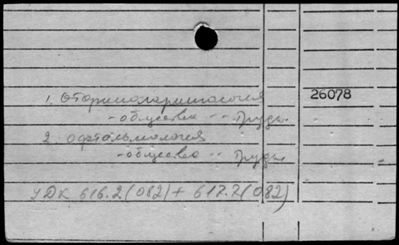 1. Оториноларингология 26078
- общества -- Труды.
2. Офтальмология
- общества -- Труды.
УДК 616.2(082)+617.7(082)